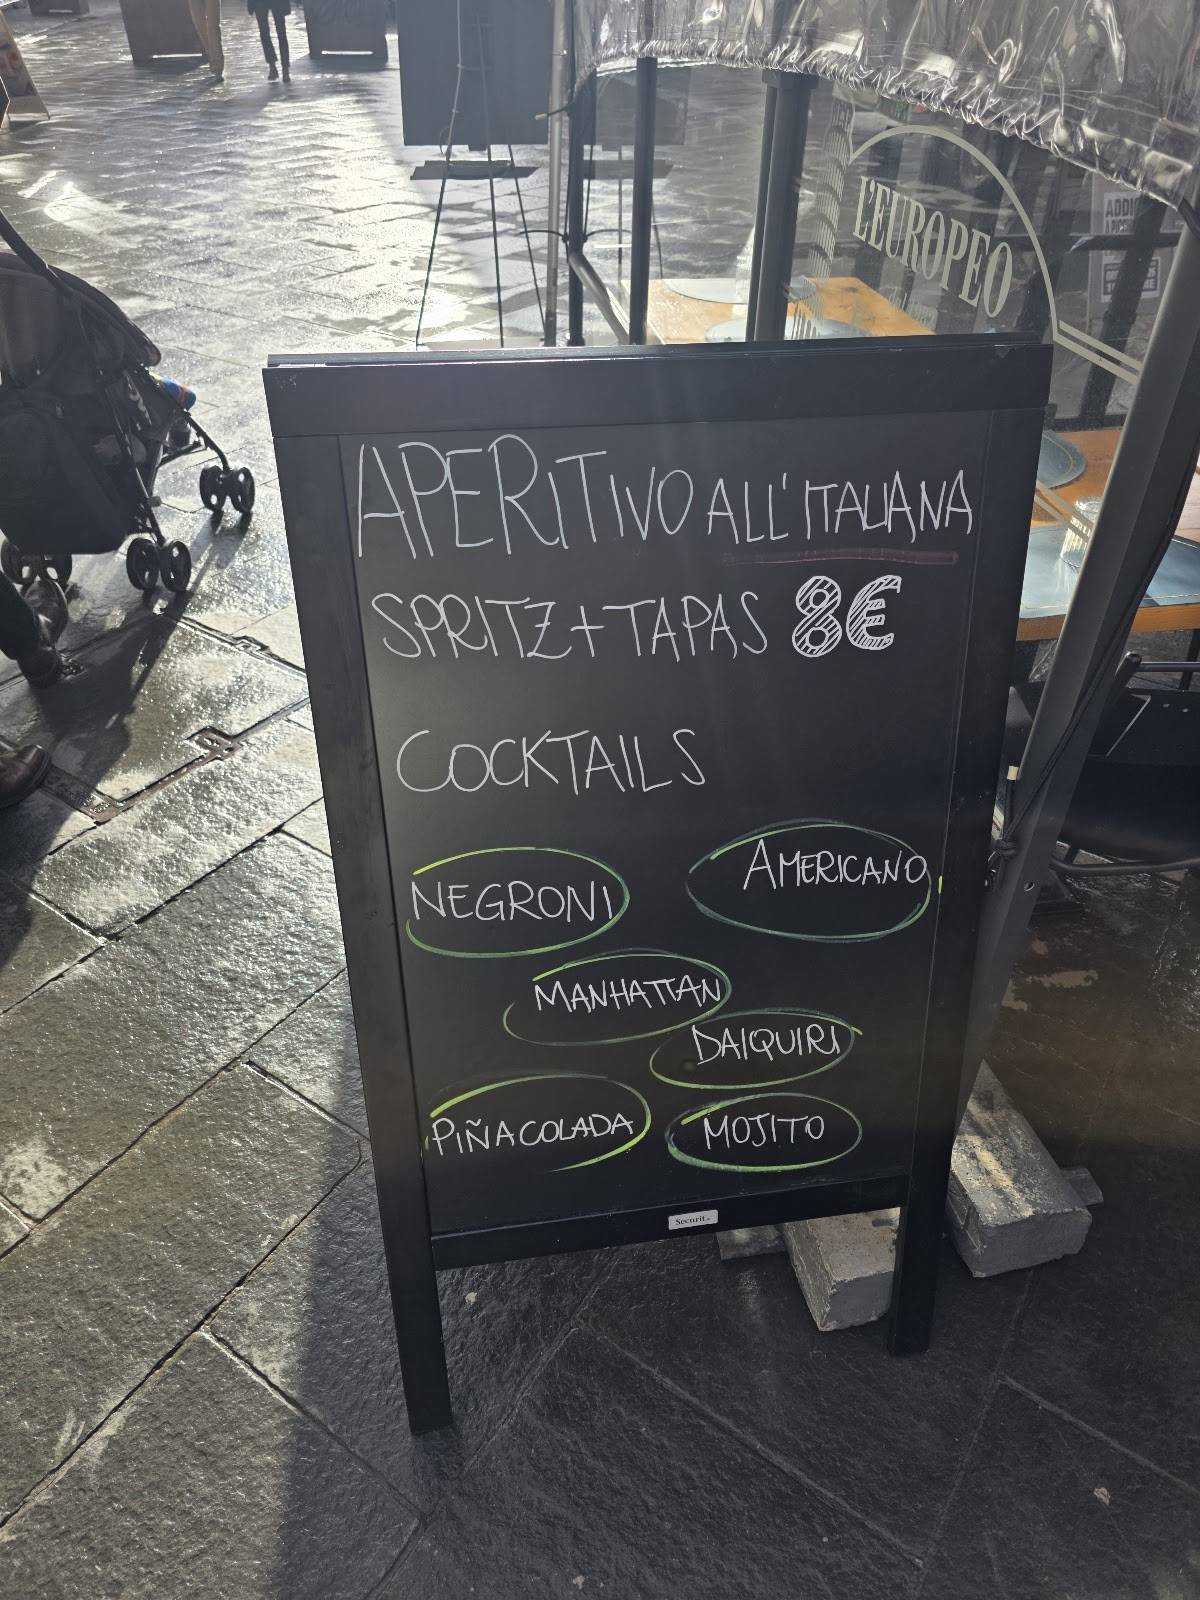 L'EUROPEO
APERITIVO ALL'ITALIANA
SPRITZ + TAPAS 8€
COCKTAILS
NEGRONI
AMERICANO
MANHATTAN
DAIQUIRI
PIÑA COLADA
MOJITO
Securit